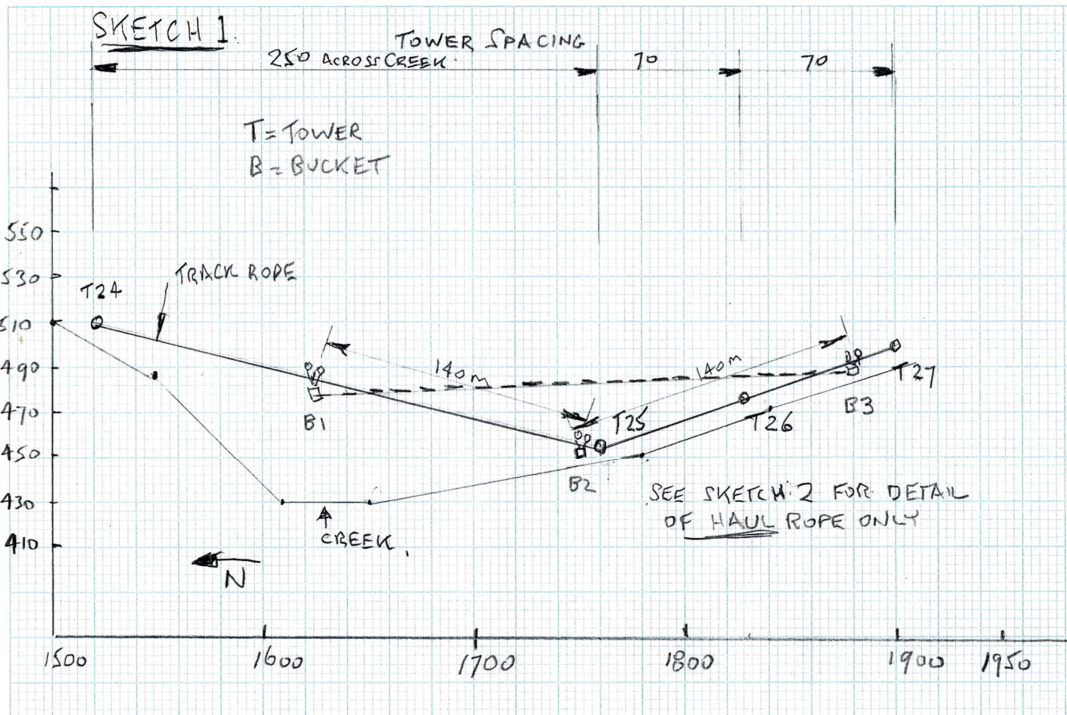 SKETCH 1.
TOWER SPACING
250 ACROSS CREEK
70
70
T = TOWER
B = BUCKET
550
530
510
490
470
450
430
410
TRACK ROPE
T24
140m
140m
B1
T25
B2
T26
B3
T27
SEE SKETCH 2 FOR DETAIL
OF HAUL ROPE ONLY
CREEK.
N
1500
1600
1700
1800
1900
1950